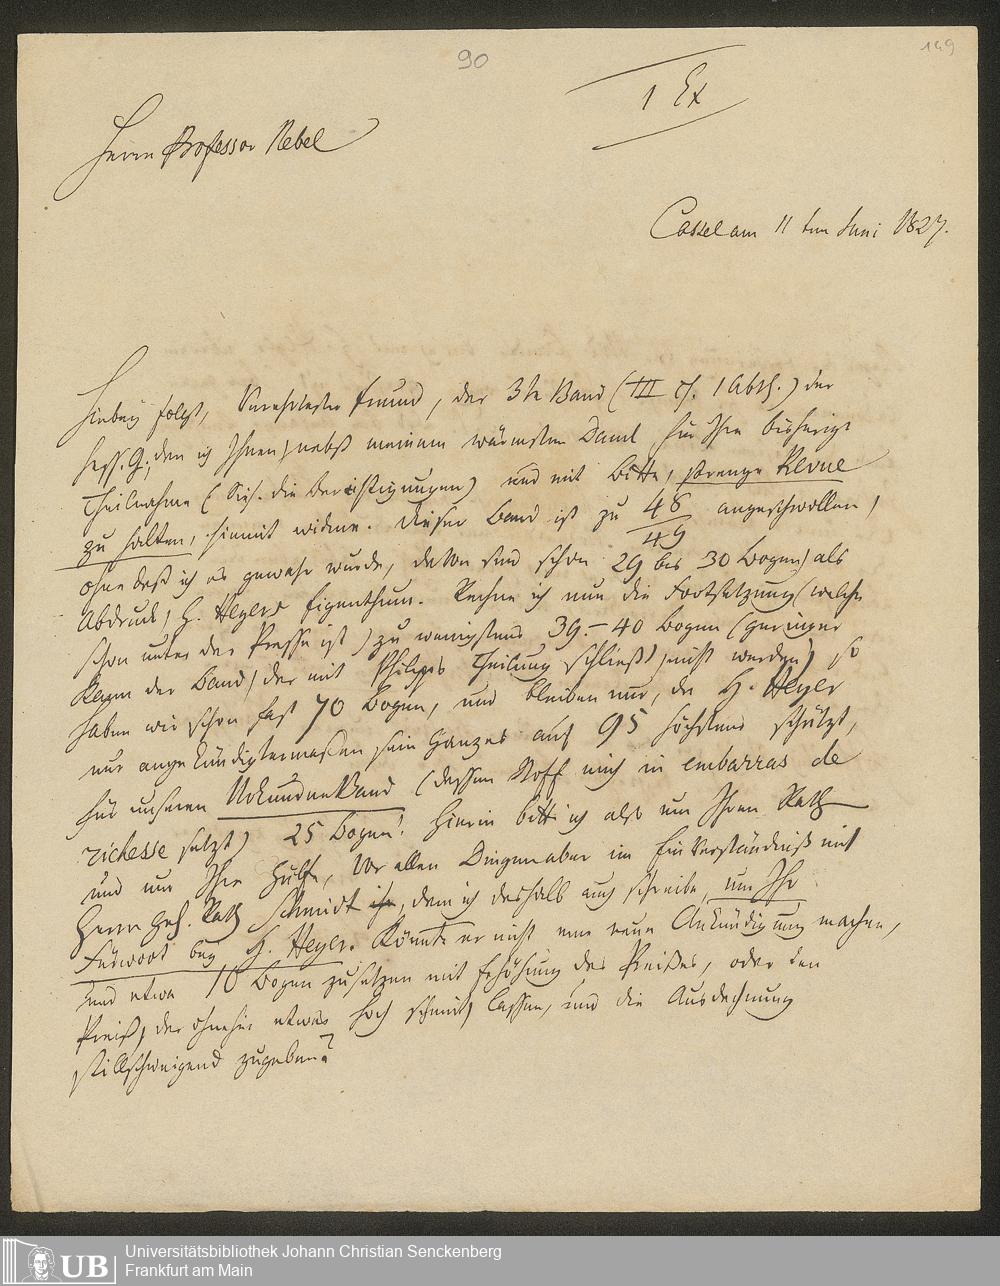 90
149
1 Ex
Herrn Professor Nebel
Cassel am 11 ten Juni 1827.
Hiebei folgt, Verehrtester Freund, der 3te Band (III H. 1 Abth.) der
hess. G., den ich Ihnen, nebst meinem wärmsten Dank für Ihre bisherige
Theilnahme (Sieh. die Berichtigungen) und mit Bitte, strenge Revue
zu halten, hiemit widme. Dieser Band ist zu 48/49 angeschwollen,
ohne daß ich es gewahr wurde, davon sind schon 29 bis 30 Bogen, als
Abdruck, H. Heyers Eigenthum. Rechne ich nun die Fortsetzung (welche
schon unter der Presse ist) zu wenigstens 39.–40 Bogen (geringer
kann der Band, der mit Philipps Theilung schließt, nicht werden) so
haben wir schon fast 70 Bogen, und bleiben nur, da H. Heyer
nur angekündigtermaßen sein Ganzes auf 95 höchstens schätzt,
für unseren Urkundenband (dessen Stoff mich in embarras de
richesse setzt) 25 Bogen! Hierin bitt ich also um Ihren Rath
und um Ihre Hülfe, Vor allen Dingen aber im Einverständniß mit
Herrn Geh. Rath Schmidt, dem ich deshalb auch schreibe, um Ihr
Fürwort bey H. Heyer. Könnte er nicht eine neue Ankündigung machen,
und etwa 10 Bogen zusetzen mit Erhöhung des Preißes, oder den
Preiß, der ohnehin etwas hoch scheint, lassen, und die Ausdehnung
stillschweigend zugeben?
UB
Universitätsbibliothek Johann Christian Senckenberg
Frankfurt am Main